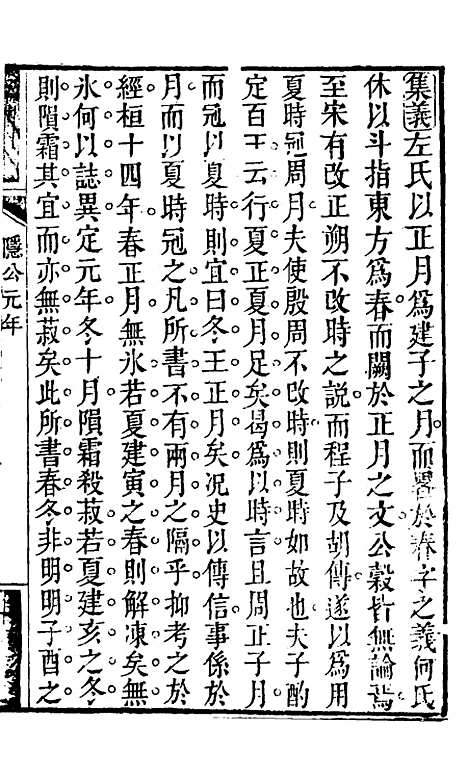 集義左氏以正月爲建子之月。而畧於春字之義何氏
休以斗指東方爲春。而闕於正月之文公穀皆無論焉
至宋有改正朔不改時之說而程子及胡傳遂以爲用
夏時冠周月。夫使殷周不改時。則夏時如故也。夫子酌
定百王云行夏正夏月足矣曷爲以時言且周正子月
而冠以夏時則宜曰冬。王正月矣。况史以傳信事係於
月而以夏時冠之凡所書不有兩月之隔乎抑考之於
經桓十四年春正月無氷若夏建寅之春則解凍矣無
氷何以誌異定元年冬十月隕霜殺菽若夏建亥之冬
則隕霜其宜而亦無菽矣此所書春冬非明明子酉之
隱公元年